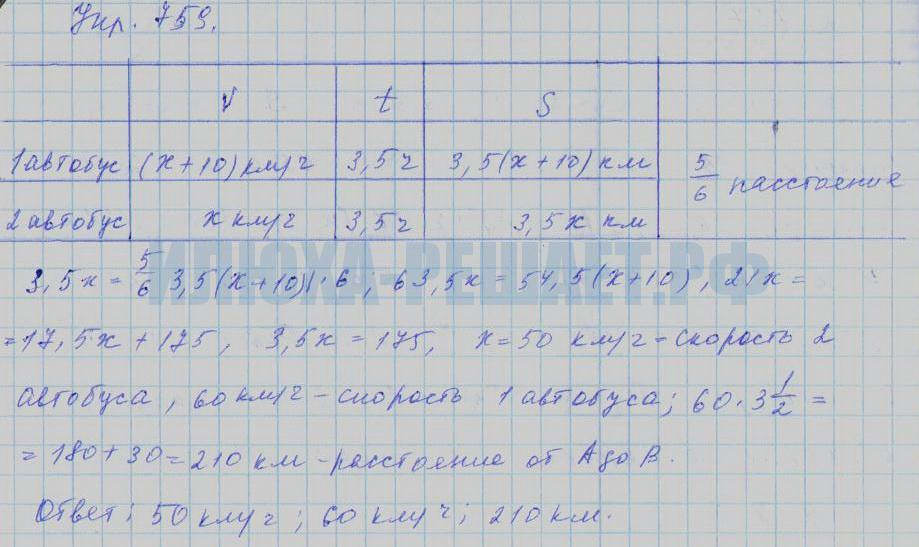 Упр. 759.
V t S
1 автобус (x+10) км/ч 3,5 ч 3,5(x+10) км 5/6 расстояние
2 автобус x км/ч 3,5 ч 3,5x км
ИЛЮХА-РЕШАЕТ.РФ
3,5x = 5/6 3,5(x+10)|·6; 6 3,5x = 5 1,5(x+10), 21x =
= 17,5x + 175, 3,5x = 175, x = 50 км/ч - скорость 2
автобуса, 60 км/ч - скорость 1 автобуса; 60·3 1/2 =
= 180 + 30 = 210 км - расстояние от А до В.
Ответ: 50 км/ч; 60 км/ч; 210 км.